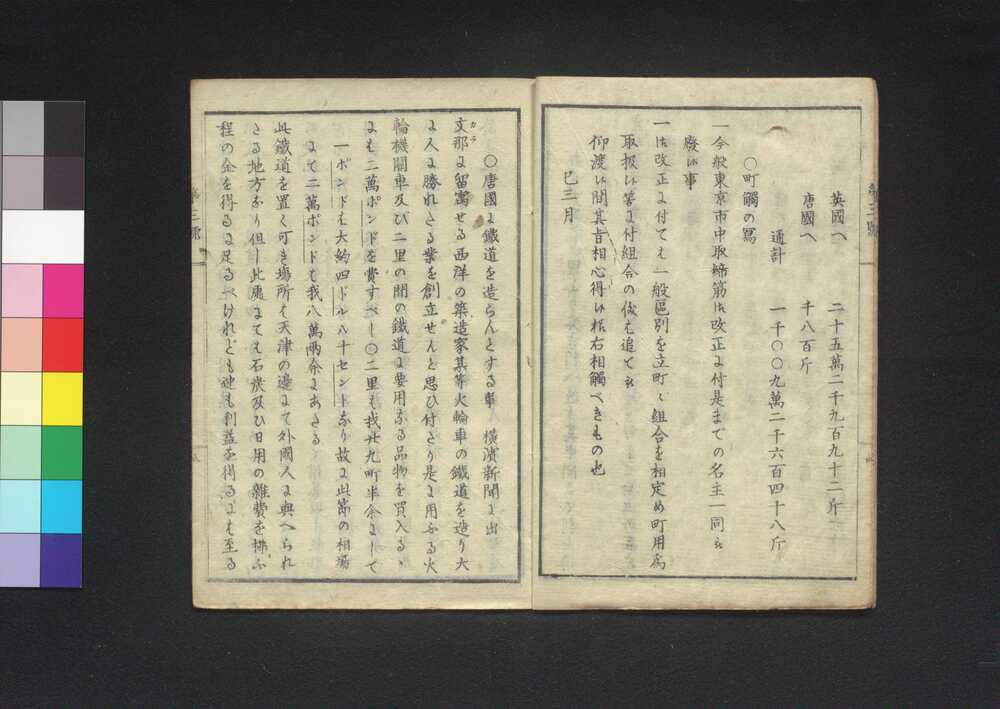 英國へ　二十五萬二千九百九十二斤
唐國へ　千八百斤
通計　一千〇〇九萬二千六百四十八斤
〇町觸の寫
一今般東京市中取締筋御改正に付是までの名主一同被
廢候事
一御改正に付ては一般區別を立町々組合を相定め町用爲
取扱候筈に付組合の儀も追て被
仰渡候間其旨相心得候樣右相觸べきもの也
巳三月
〇唐國に鐵道を造らんとする事　横濱新聞に出
支那に留寓せる西洋の築造家某等火輪車の鐵道を造り大
カラ
に人に勝れたる業を創立せんと思ひ付たり是に用ふる火
輪機關車及び二里の間の鐵道に要用なる品物を買入るゝ
にも二萬ポンドを費すべし〇二里も我廿九町半余にして
一ポンドは大約四ドル八十セントなり故に此節の相場
にて二萬ポンドて我八萬兩余にあたる
此鐵道を置く可き場所は天津の邊にて外國人に與へられ
たる地方なり但し此處にては石炭及び日用の雜費を拂ふ
程の金を得るに足るべけれども迚も利益を得るには至る
第三號